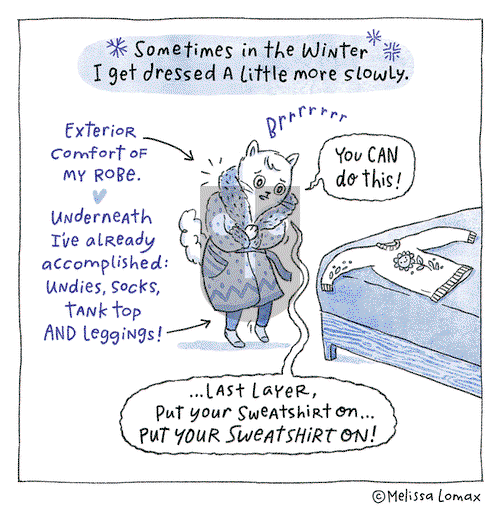 Sometimes in the Winter
I get dressed A little more slowly.
Exterior
Comfort of
my Robe.
Underneath
I've already
accomplished:
Undies, socks,
tank top
AND leggings!
Brrrrrrr
You CAN
do this!
...Last Layer,
Put your Sweatshirt on...
PUT YOUR SWEATSHIRT ON!
©Melissa Lomax